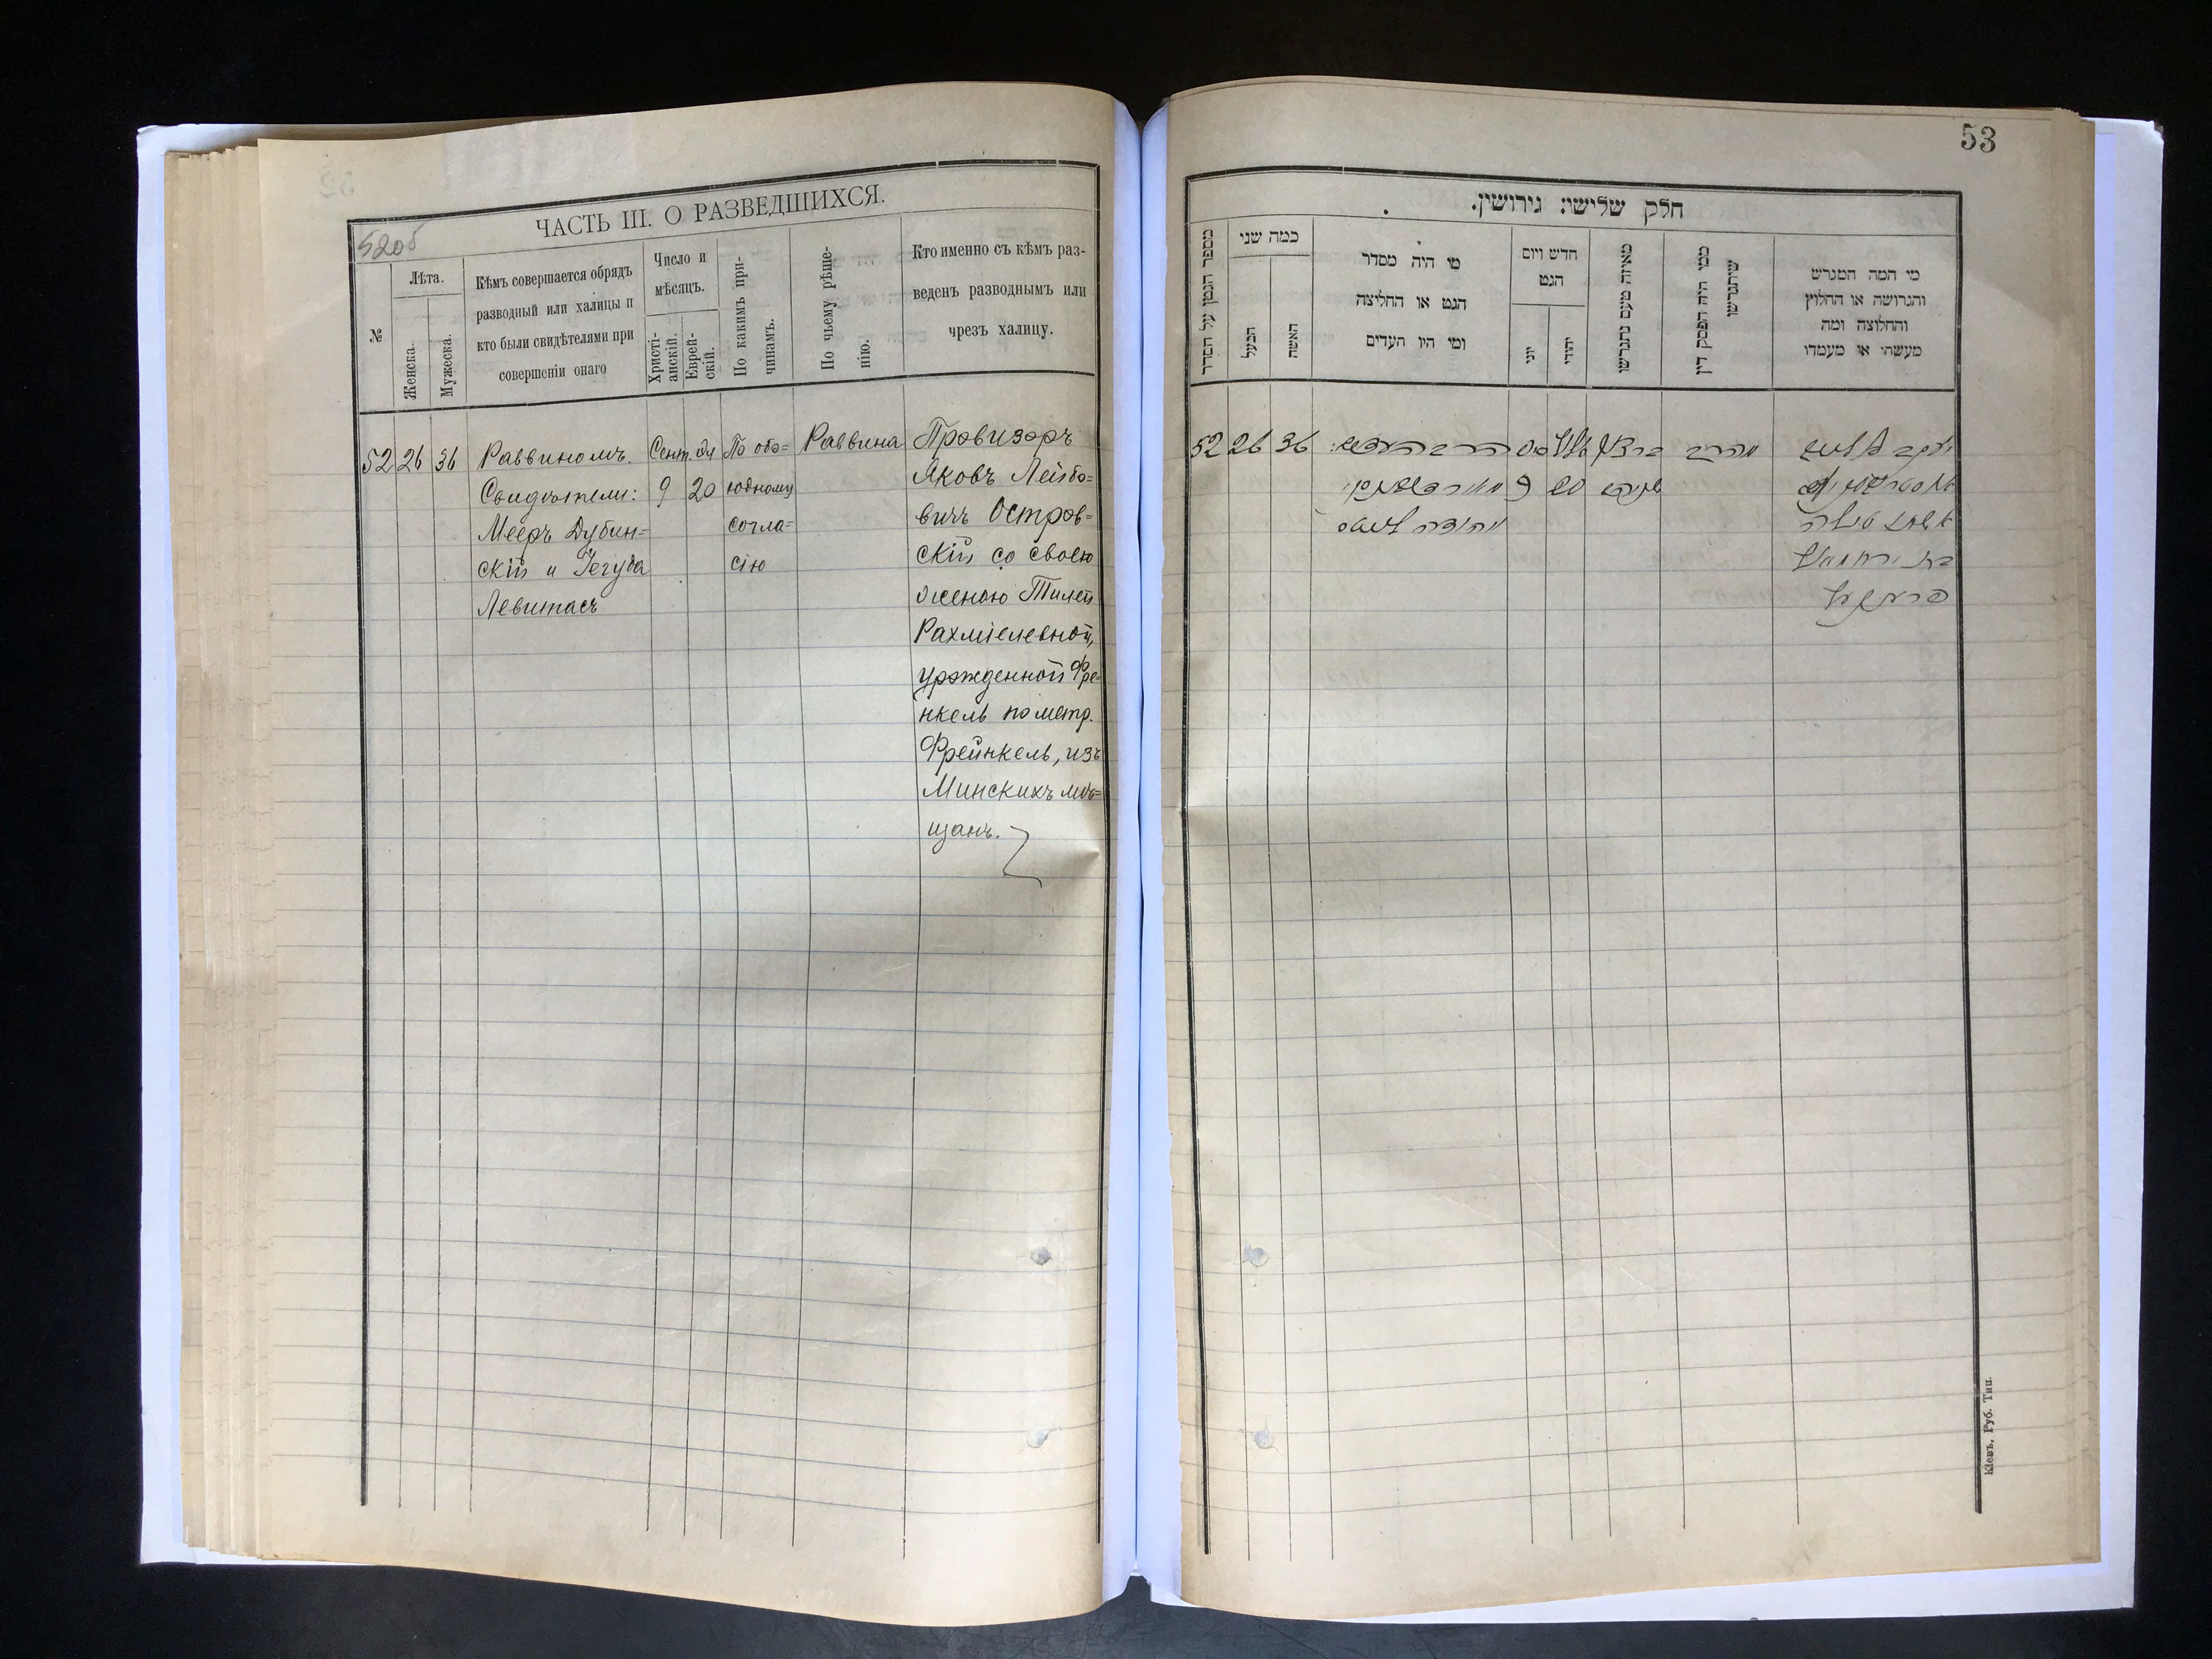 52об
ЧАСТЬ III. О РАЗВЕДШИХСЯ.
№
Лѣта.
Женска.
Мужеска.
Кѣмъ совершается обрядъ
разводный или халицы и
кто были свидѣтелями при
совершеніи онаго
Число и
мѣсяцъ.
Христі-
анскій.
Еврей-
скій.
По какимъ при-
чинамъ.
По чьему рѣше-
нію.
Кто именно съ кѣмъ раз-
веденъ разводнымъ или
чрезъ халицу.
52 26 36
Раввиномъ.
Свидѣтели:
Мееръ Дубин=
скій и Іегуда
Левитасъ
Сент.
9
20
По обо=
юдному
согла=
сію
Раввина
Провизоръ
Яковъ Лейбо=
вичъ Остров=
скій со своею
женою Тилей
Рахміелевной,
урожденной Фре=
нкель по метр.
Фрейнкель, изъ
Минскихъ мѣ=
щанъ.
53
חלק שלישי: גירושין.
מספר הגטין על הסדר
כמה שני
הבעל
האשה
מי היה מסדר
הגט או החליצה
ומי היו העדים
חדש ויום
הגט
יוני
יהודי
מאיזה טעם נתגרשו
ממי היה הפסק דין
שיתגרשו
מי המה המגרש
והגרושה או החלוץ
והחלוצה ומה
מעשהו או מעמדו
52 26 36
9
Кіевъ, Руб. Тип.